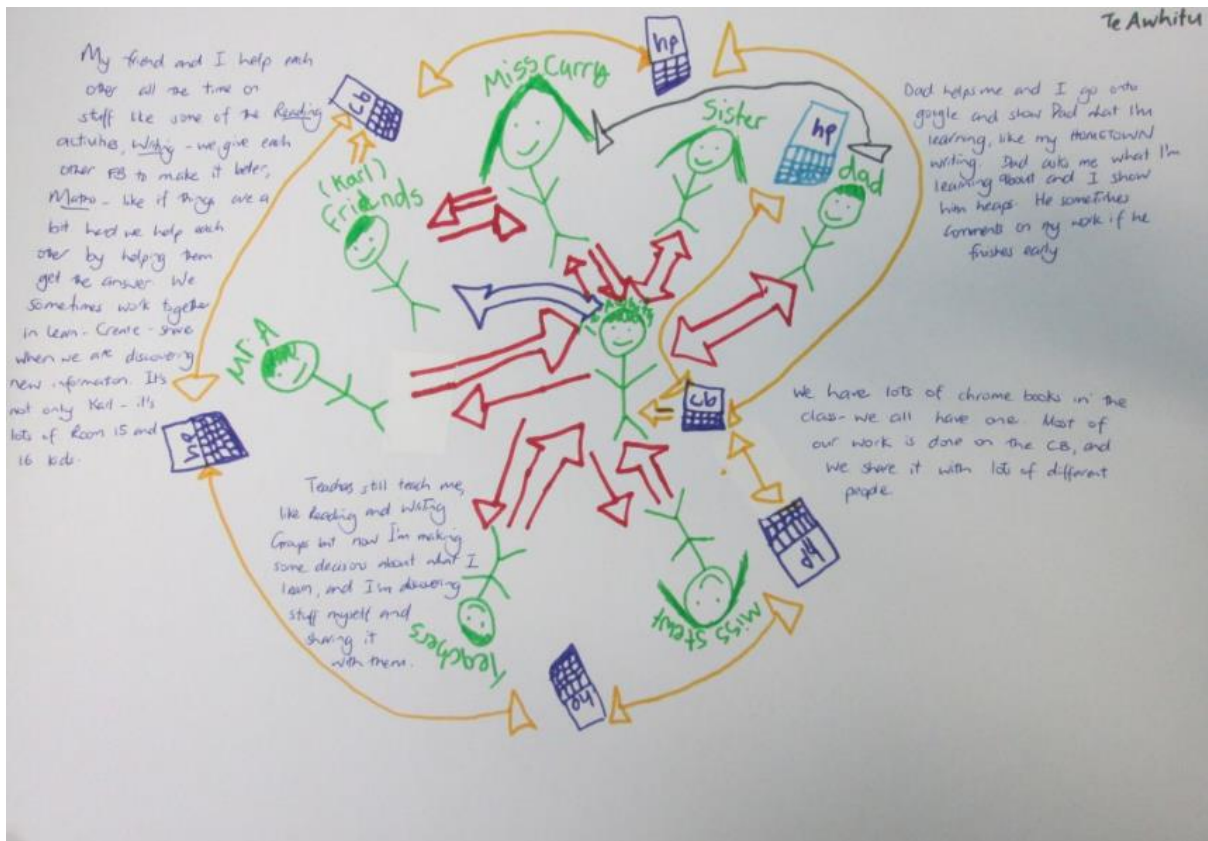 Te Awhitu
My friend and I help each
other all the time on
stuff like some of the Reading
activities, Writing - we give each
other FB to make it better,
Maths - like if things are a
bit hard we help each
other by helping them
get the answer. We
sometimes work together
in Learn - Create - share
when we are discovering
new information. It's
not only Karl - it's
lots of Room 15 and
16 kids.
hp
Miss Curry
cb
Sister
hp
dad
(Karl)
friends
Dad helps me and I go onto
google and show Dad what I'm
learning, like my HOMETOWN
writing. Dad asks me what I'm
learning about and I show
him heaps. He sometimes
comments on my work if he
finishes early
Mr. A
cb
We have lots of chrome books in the
class - we all have one. Most of
our work is done on the CB, and
we share it with lots of different
people.
hp
Teachers still teach me,
like Reading and Writing
Groups but now I'm making
some decisions about what I
learn, and I'm discovering
stuff myself and
sharing it
with them.
hp
Teachers
Miss Stewt
hp